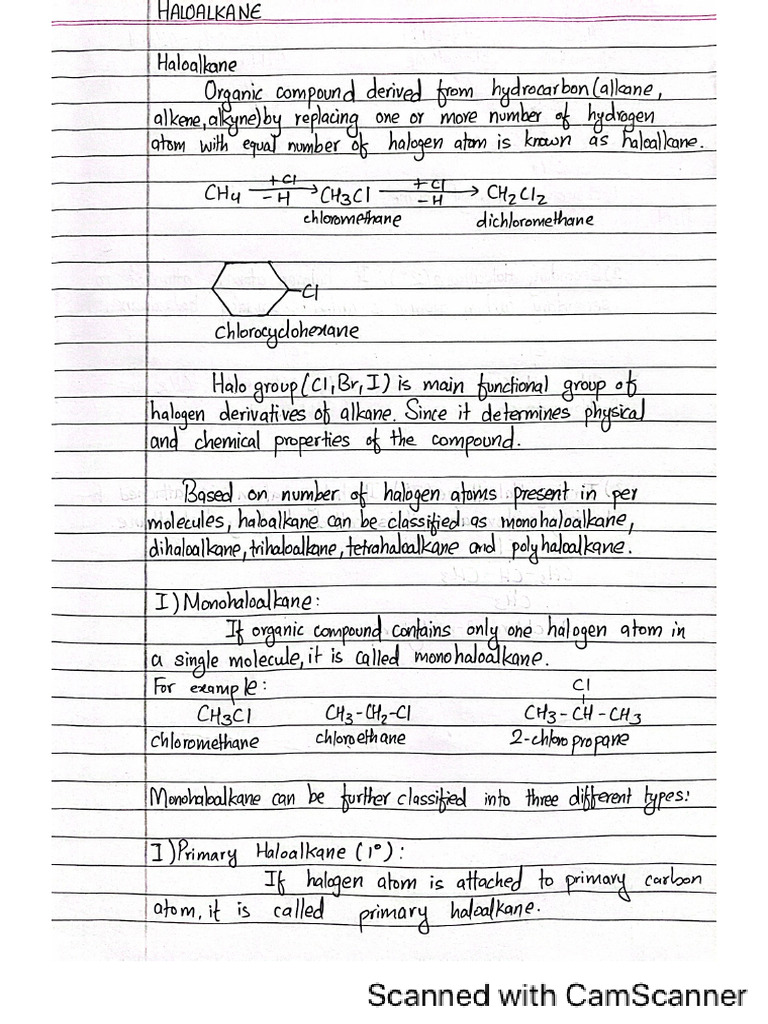 HALOALKANE
Haloalkane
Organic compound derived from hydrocarbon (alkane,
alkene, alkyne) by replacing one or more number of hydrogen
atom with equal number of halogen atom is known as haloalkane.
CH4 +Cl -H → CH3Cl +Cl -H → CH2Cl2
chloromethane dichloromethane
Cl
Chlorocyclohexane
Halo group (Cl, Br, I) is main functional group of
halogen derivatives of alkane. Since it determines physical
and chemical properties of the compound.
Based on number of halogen atoms present in per
molecules, haloalkane can be classified as monohaloalkane,
dihaloalkane, trihaloalkane, tetrahaloalkane and polyhaloalkane.
I) Monohaloalkane:
If organic compound contains only one halogen atom in
a single molecule, it is called monohaloalkane.
For example:
Cl
CH3Cl CH3-CH2-Cl CH3-CH-CH3
chloromethane chloroethane 2-chloropropane
Monohaloalkane can be further classified into three different types:
I) Primary Haloalkane (1°):
If halogen atom is attached to primary carbon
atom, it is called primary haloalkane.
Scanned with CamScanner